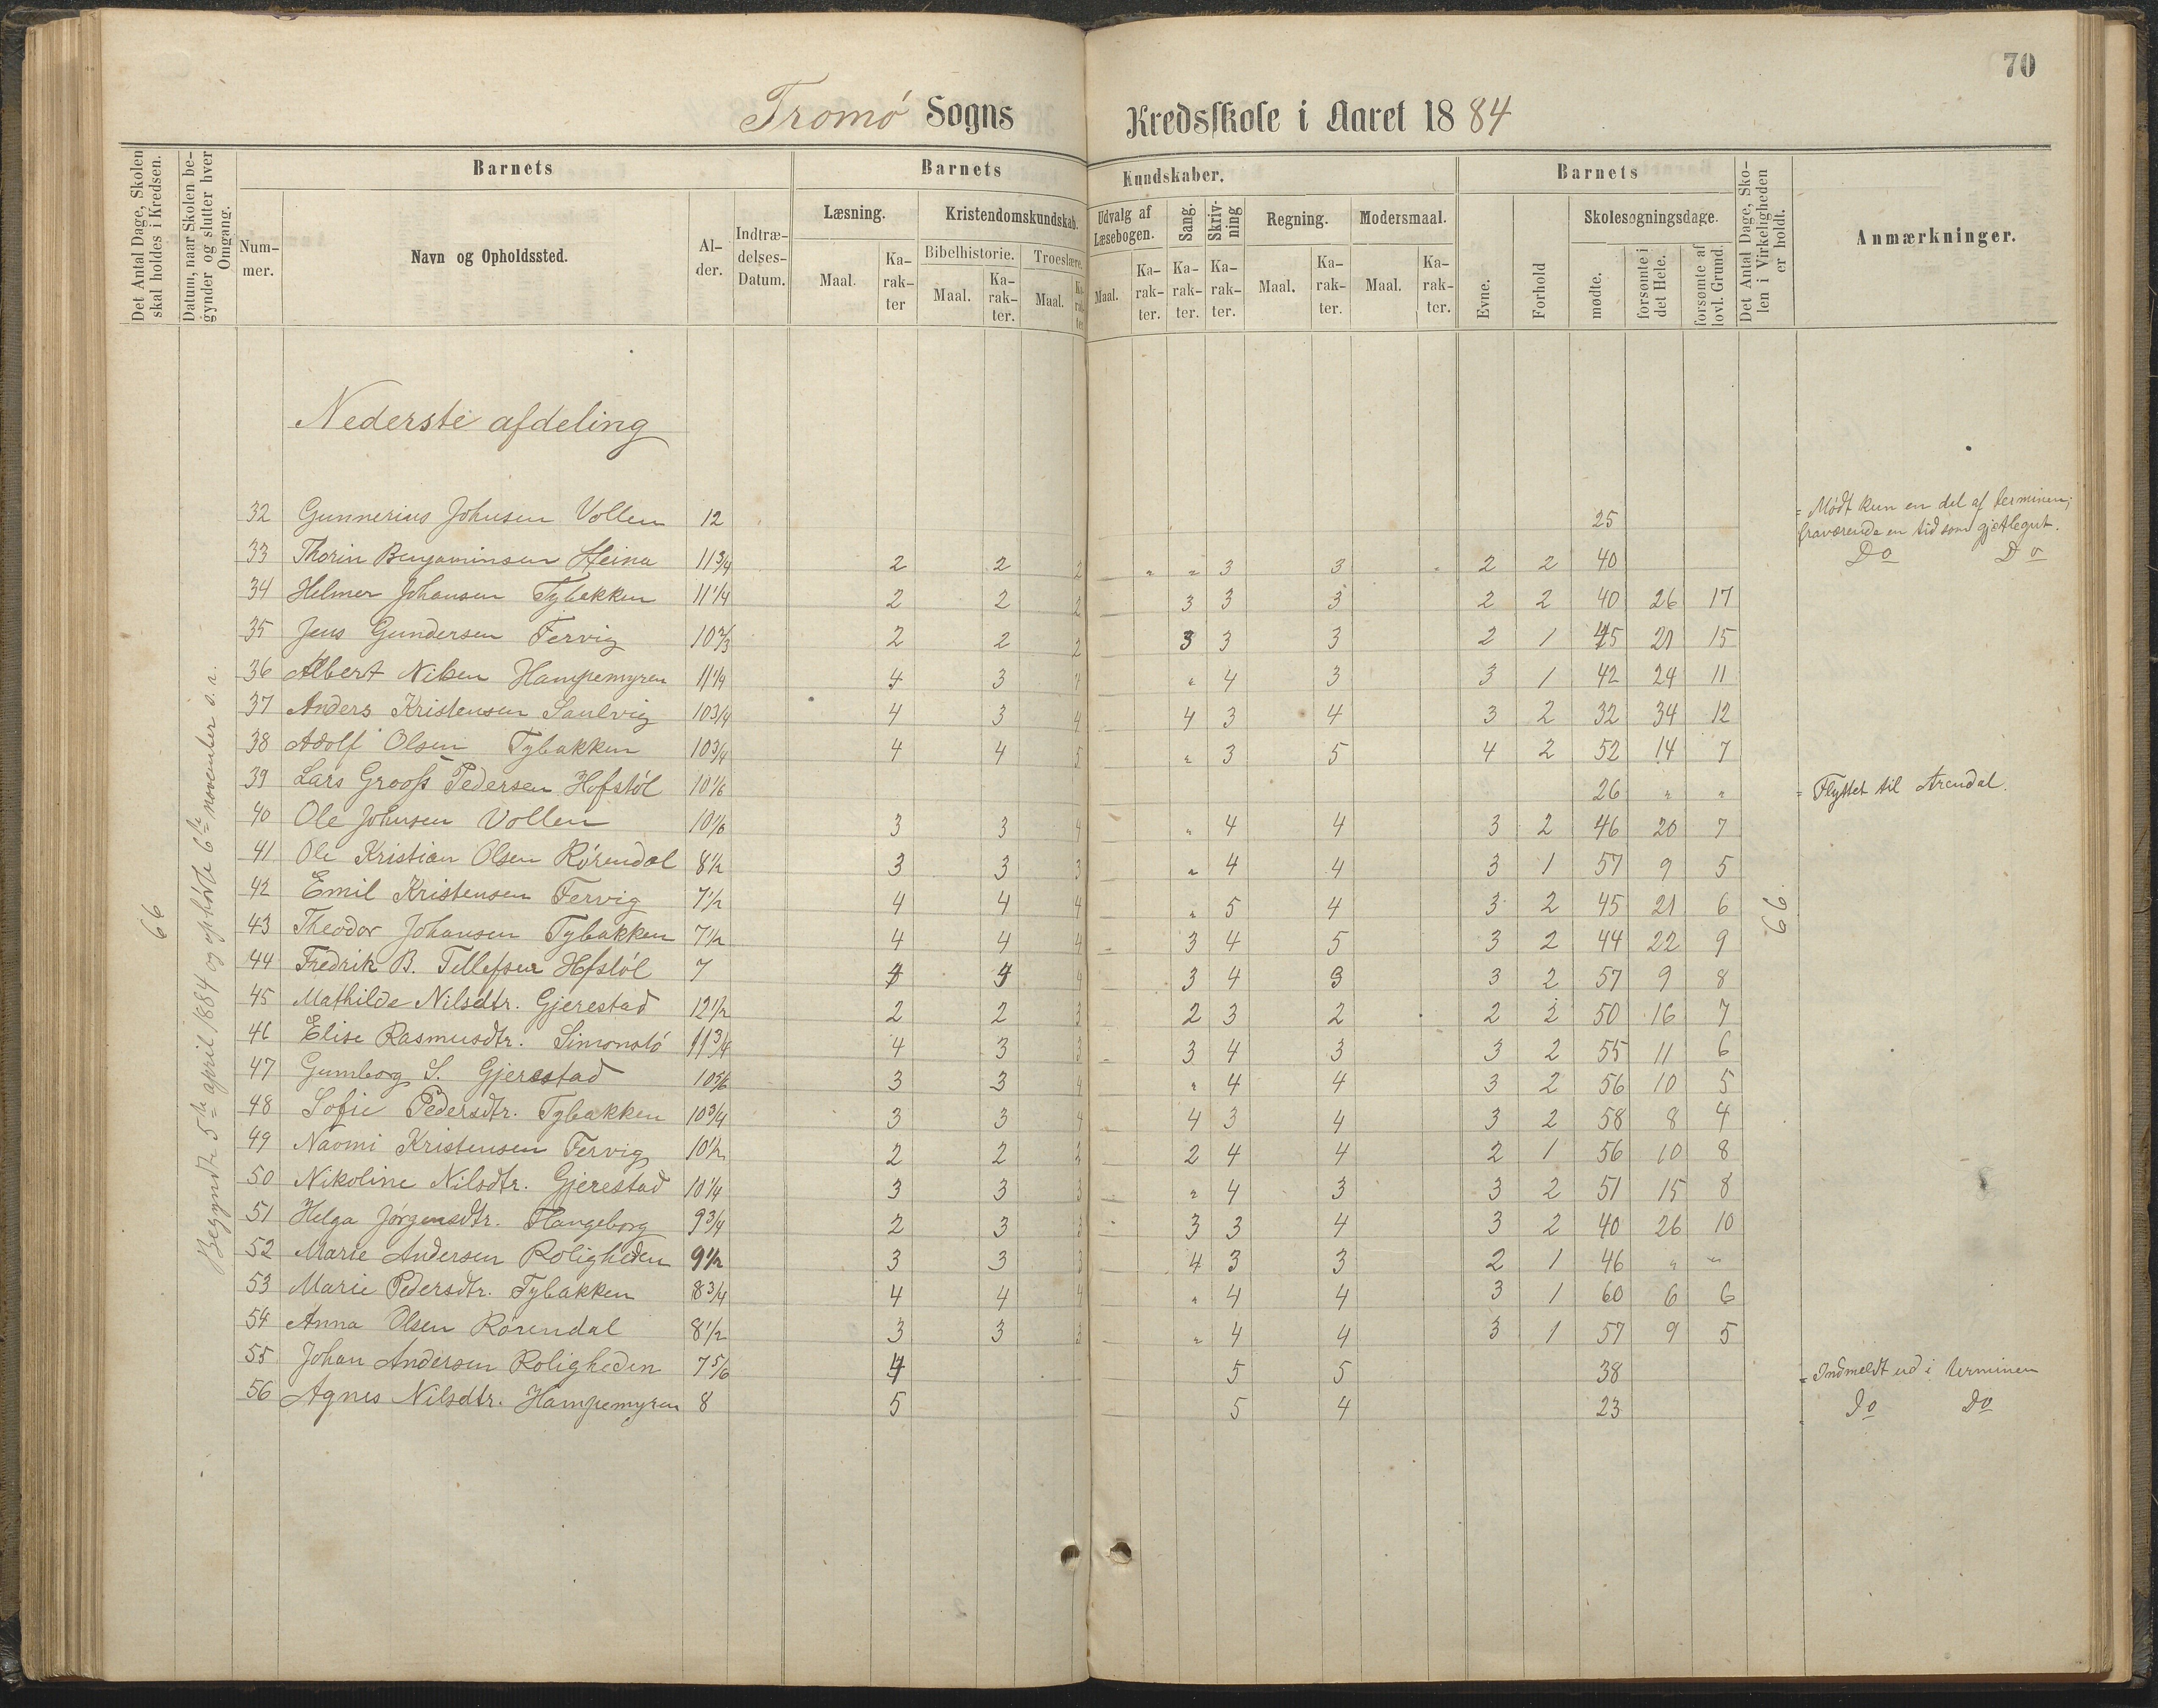 70
Tromø Sogns Kredsskole i Aaret 1884
Det Antal Dage, Skolen skal holdes i Kredsen.
Datum, naar Skolen begynder og slutter hver Omgang.
Barnets
Nummer.
Navn og Opholdssted.
Alder.
Indtrædelses-Datum.
Barnets Kundskaber.
Læsning.
Maal.
Karakter
Kristendomskundskab.
Bibelhistorie.
Maal.
Karakter.
Troeslære.
Maal.
Karakter
Udvalg af Læsebogen.
Maal.
Karakter.
Sang.
Karakter.
Skrivning
Karakter.
Regning.
Maal.
Karakter.
Modersmaal.
Maal.
Karakter.
Barnets
Evne.
Forhold
Skolesøgningsdage.
mødte.
forsømte i det Hele.
forsømte af lovl. Grund.
Det Antal Dage, Skolen i Virkeligheden er holdt.
Anmærkninger.
66
Begyndte 5te april 1884 og ophørte 6te november s. a.
66.
Nederste afdeling
32 Gunnerius Johnsen Vollen 12 25 = Mødt kun en del af terminen; fraværende en tid som gjætlegut.
33 Thorin Benjaminsen Heina 11 3/4 2 2 2 " " 3 3 2 2 40 Do Do
34 Helmer Johansen Tybakken 11 1/4 2 2 2 3 3 3 2 2 40 26 17
35 Jens Gundersen Fervig 10 2/3 2 2 2 3 3 3 2 1 45 21 15
36 Albert Nilsen Hampemyren 11 1/4 4 3 4 " 4 3 3 1 42 24 11
37 Anders Kristensen Saulvig 10 3/4 4 3 4 4 3 4 3 2 32 34 12
38 Adolf Olsen Tybakken 10 3/4 4 4 5 " 3 5 4 2 52 14 7
39 Lars Grooss Pedersen Hofstøl 10 1/6 26 " " = Flyttet til Arendal.
40 Ole Johnsen Vollen 10 1/6 3 3 4 " 4 4 3 2 46 20 7
41 Ole Kristian Olsen Rørendal 8 1/2 3 3 3 " 4 4 3 1 57 9 5
42 Emil Kristensen Fervig 7 1/2 4 4 4 " 5 4 3 2 45 21 6
43 Theodor Johansen Tybakken 7 1/2 4 4 4 3 4 5 3 2 44 22 9
44 Fredrik B. Tellefsen Hofstøl 7 4 4 4 3 4 3 3 2 57 9 8
45 Mathilde Nilsdtr. Gjerestad 12 1/2 2 2 3 2 3 2 2 2 50 16 7
46 Elise Rasmusdtr. Simonstø 11 3/4 4 3 3 3 4 3 3 2 55 11 6
47 Gumborg S. Gjerestad 10 5/6 3 3 4 " 4 4 3 2 56 10 5
48 Sofie Pedersdtr. Tybakken 10 3/4 3 3 4 4 3 4 3 2 58 8 4
49 Naomi Kristensen Fervig 10 1/2 2 2 2 2 4 4 2 1 56 10 8
50 Nikoline Nilsdtr. Gjerestad 10 1/4 3 3 3 " 4 3 3 2 51 15 8
51 Helga Jørgensdtr. Hangeborg 9 3/4 2 3 3 3 3 4 3 2 40 26 10
52 Marie Andersen Roligheden 9 1/2 3 3 3 4 3 3 2 1 46 " "
53 Marie Pedersdtr. Tybakken 8 3/4 4 4 4 " 4 4 3 1 60 6 6
54 Anna Olsen Rørendal 8 1/2 3 3 3 " 4 4 3 1 57 9 5
55 Johan Andersen Roligheden 7 5/6 4 5 5 38 = Indmeldt ud i terminen
56 Agnes Nilsdtr. Hampemyren 8 5 5 4 23 Do Do